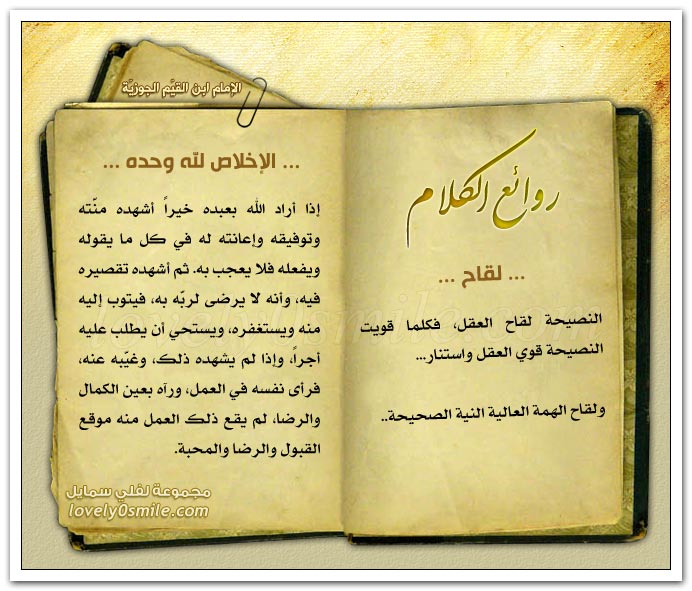 الإمام ابن القيّم الجوزيّة
روائع الكلام
... لقاح ...
النصيحة لقاح العقل، فكلما قويت
النصيحة قوي العقل واستنار...
ولقاح الهمة العالية النية الصحيحة..
... الإخلاص للّه وحده ...
إذا أراد الله بعبده خيراً أشهده منّته
وتوفيقه وإعانته له في كل ما يقوله
ويفعله فلا يعجب به. ثم أشهده تقصيره
فيه، وأنه لا يرضى لربّه به، فيتوب إليه
منه ويستغفره، ويستحي أن يطلب عليه
أجراً، وإذا لم يشهده ذلك، وغيّبه عنه،
فرأى نفسه في العمل، ورآه بعين الكمال
والرضا، لم يقع ذلك العمل منه موقع
القبول والرضا والمحبة.
مجموعة لفلي سمايل
lovely0smile.com
lovely0smile.com